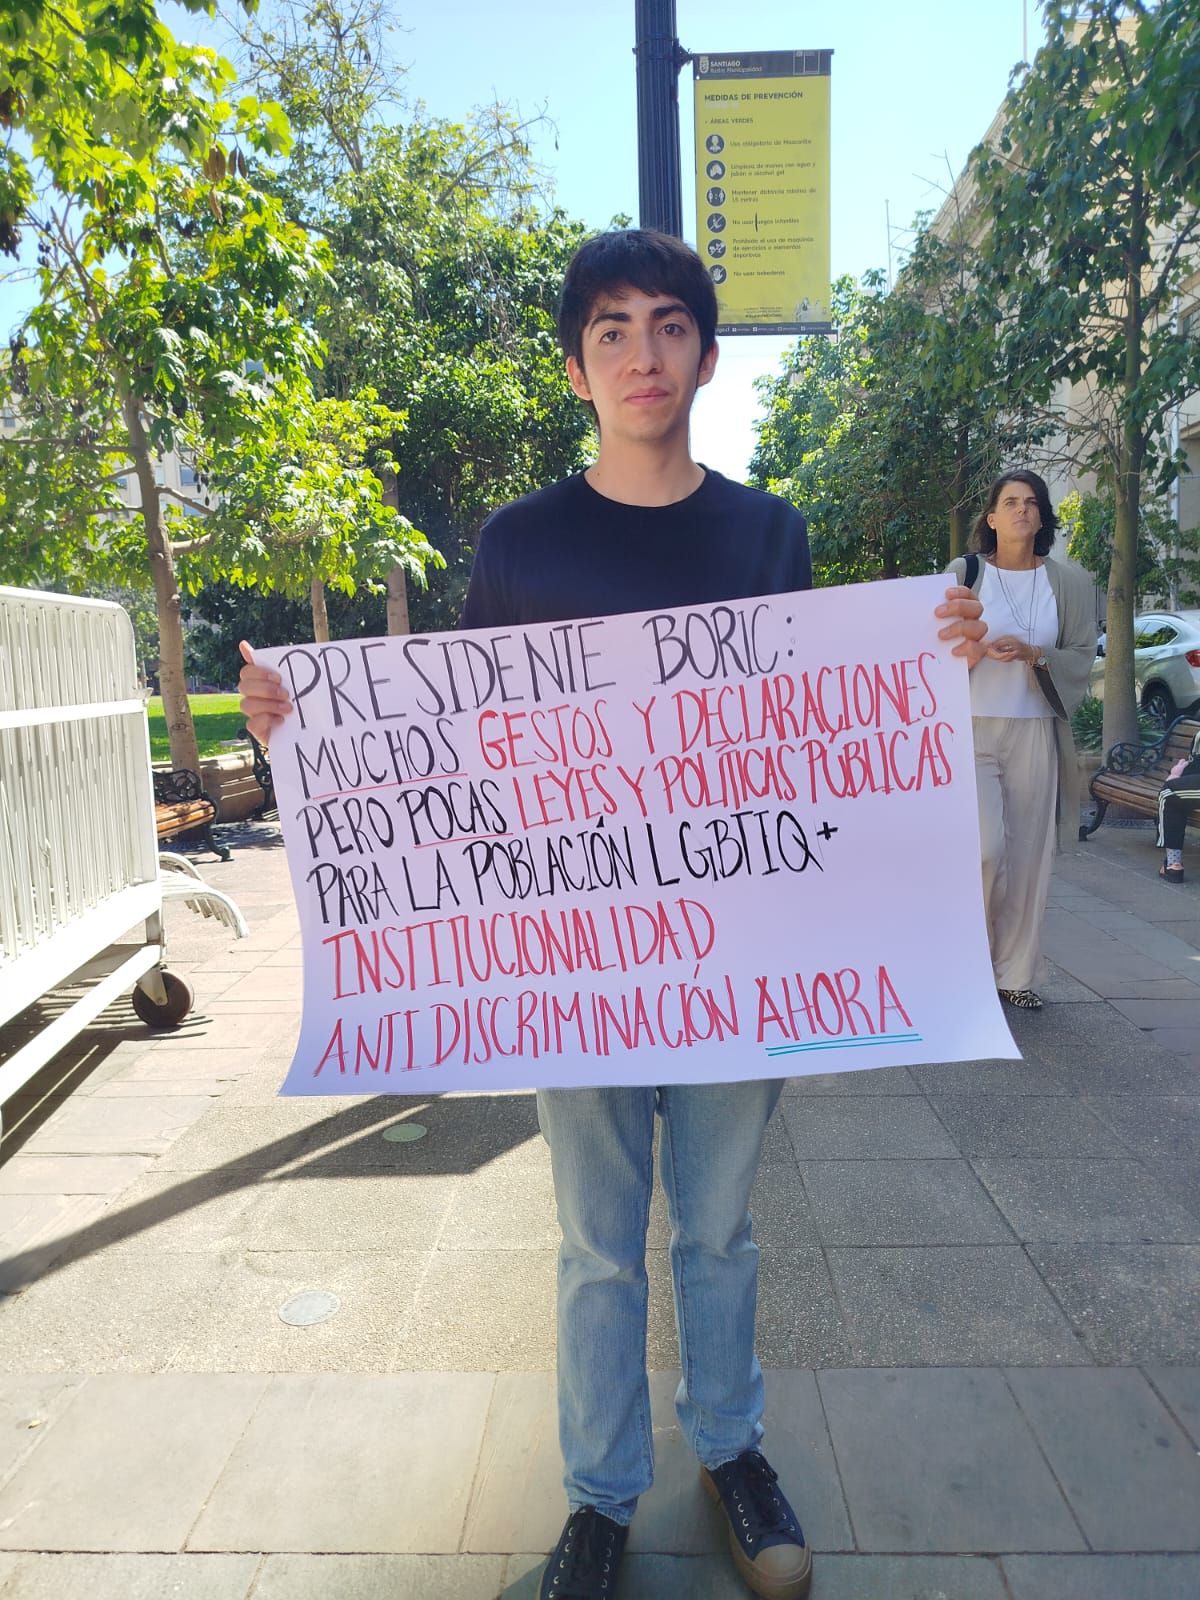 SANTIAGO
Ilustre Municipalidad
MEDIDAS DE PREVENCIÓN
ÁREAS VERDES
Uso obligatorio de Mascarilla
Limpieza de manos con agua y
jabón o alcohol gel
Mantener distancia mínima de
1,5 metros
No usar juegos infantiles
Prohibido el uso de máquinas
de ejercicios o elementos
deportivos
No usar bebederos
PRESIDENTE BORIC:
MUCHOS GESTOS Y DECLARACIONES
PERO POCAS LEYES Y POLÍTICAS PÚBLICAS
PARA LA POBLACIÓN LGBTIQ+
INSTITUCIONALIDAD
ANTIDISCRIMINACIÓN AHORA